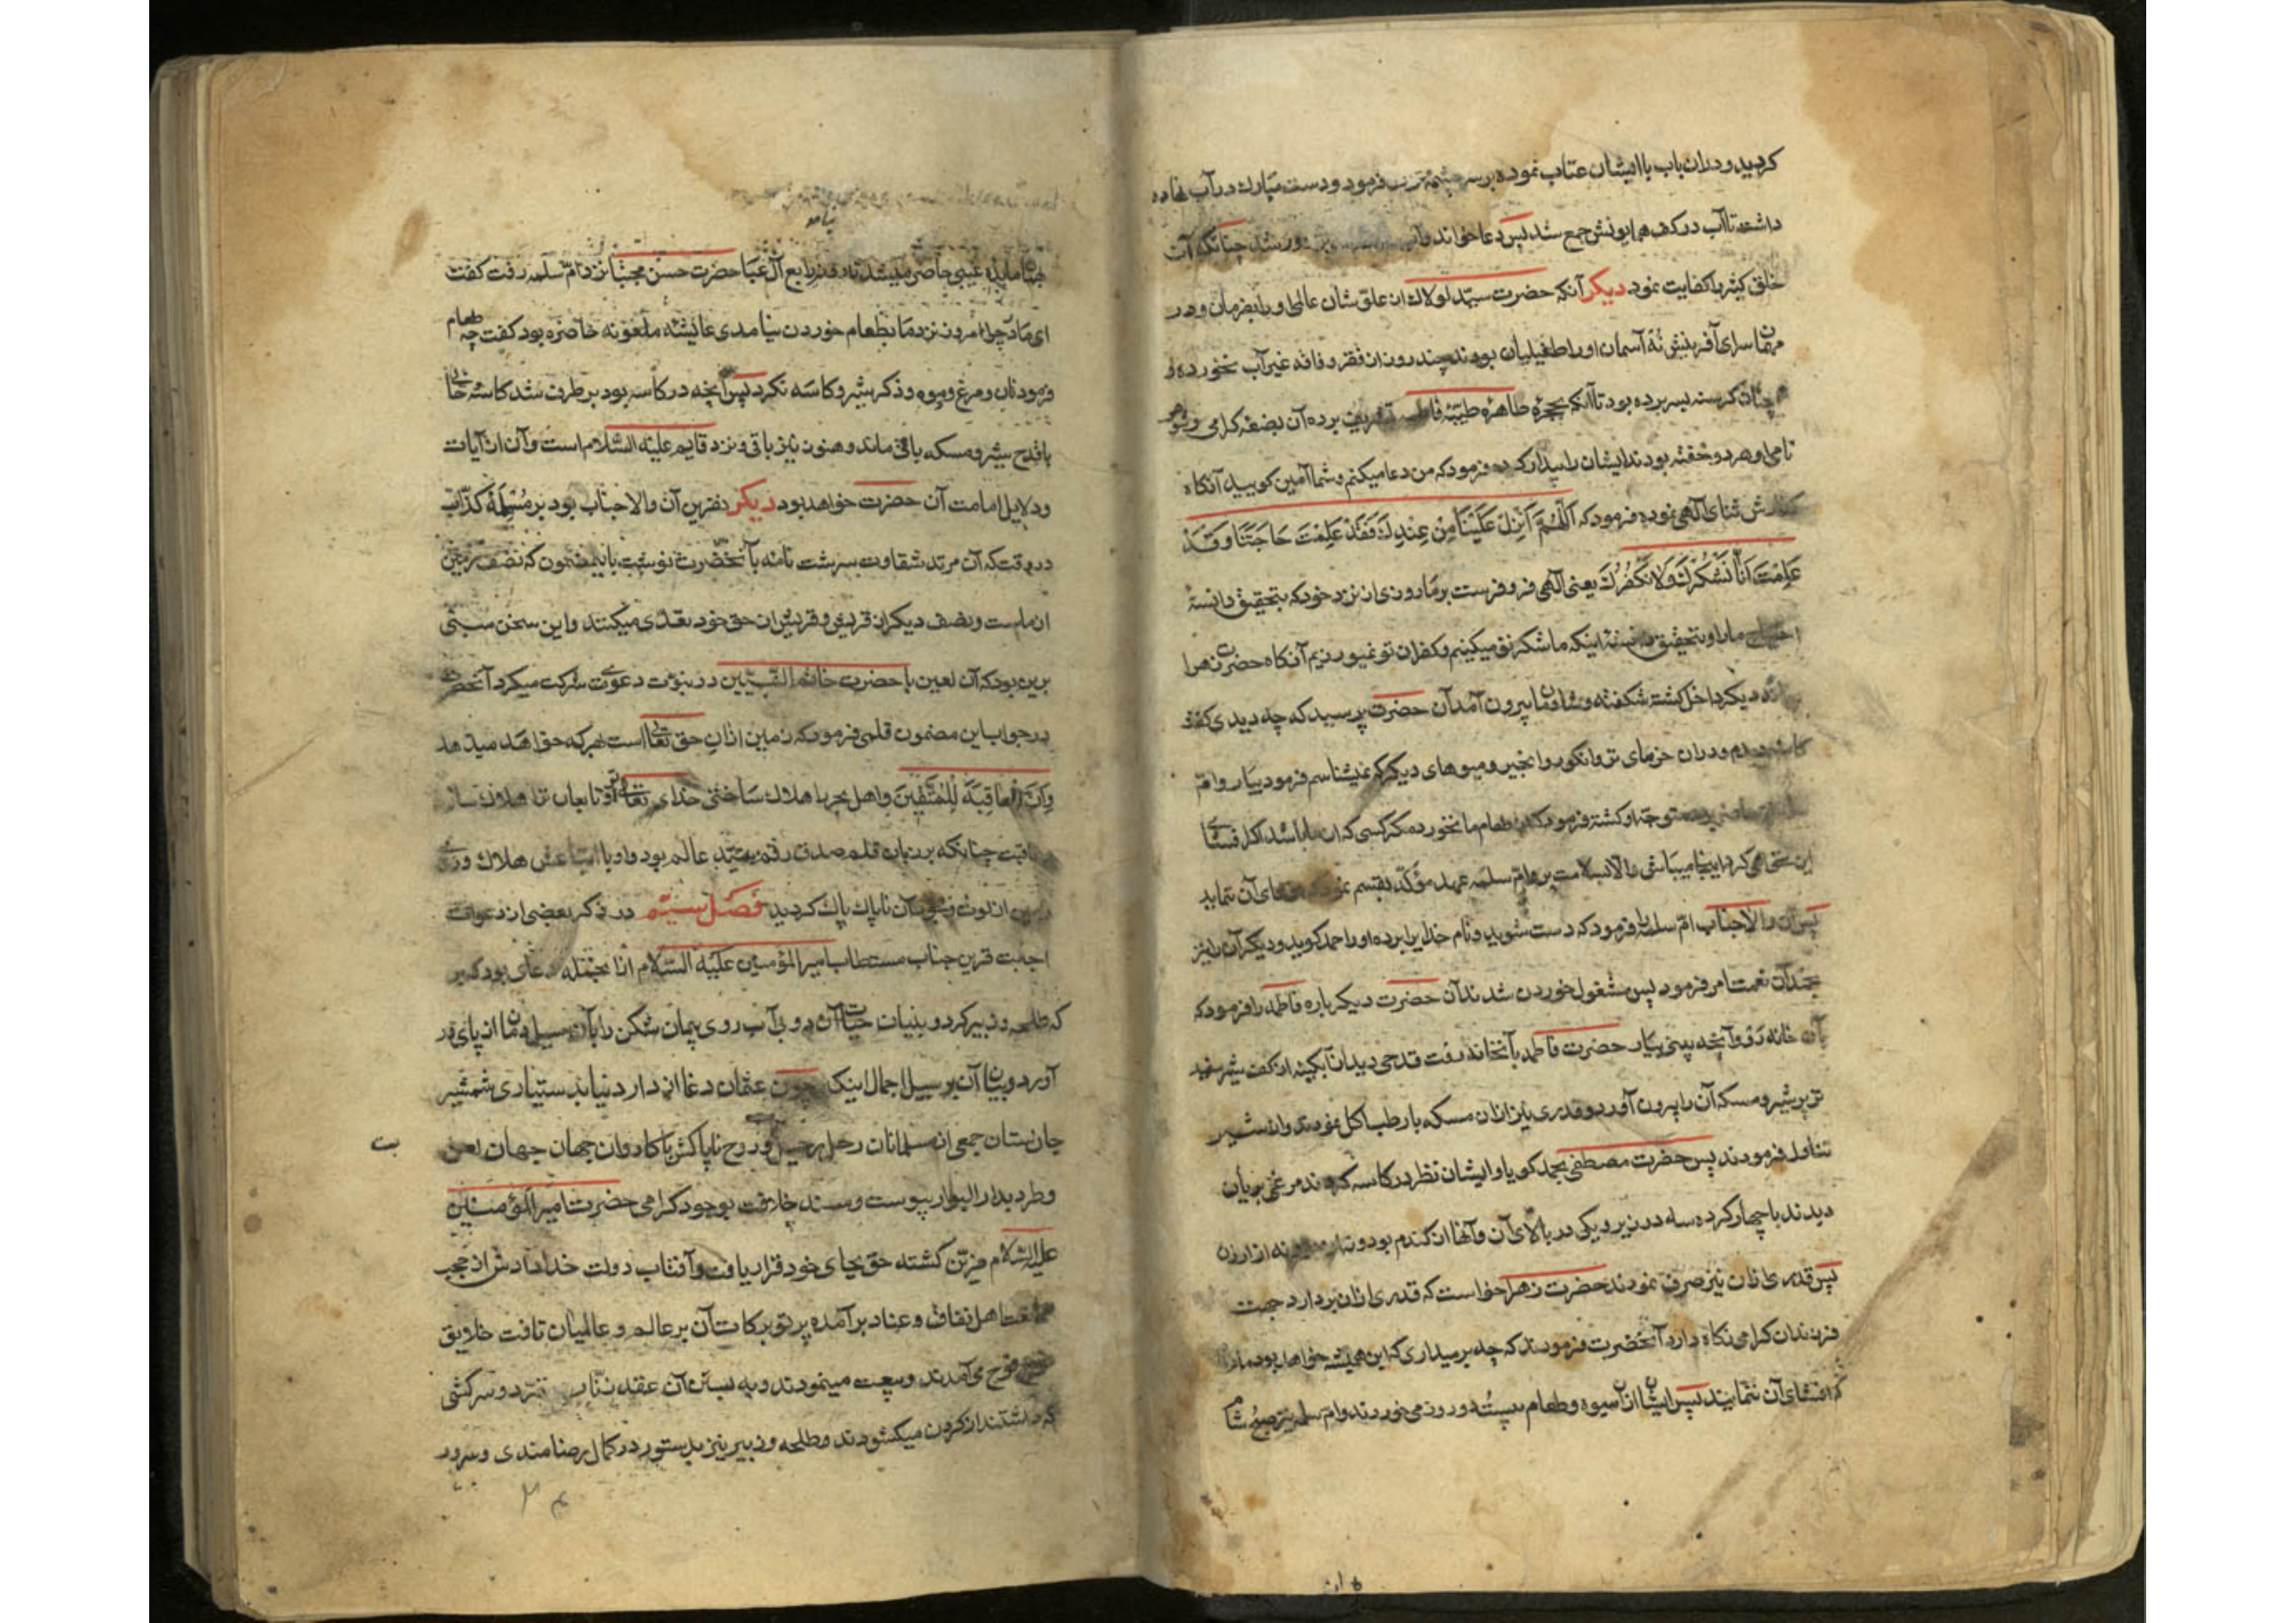 کردید و در آن باب با ایشان عتاب نموده بر سر چشمه فرمود و دست مبارک در آب نهاده
داشت تا آب در کف همایونش جمع شد پس دعا خواند چنانکه آن
خلق کثیر را کفایت نمود دیکر آنکه حضرت سید لولاک از علو شان عالی او را بفرمان و در
مهمان سرای آفرینش نه آسمان او را طفیلیان بودند چند روز از فقر و فاقه غیر آب نخورده و
چنان کرسنه بسر برده بود تا آنکه بحجرهٔ طاهره طیبه فاطمه تشریف برده آن بضعهٔ کرامی و شوهر
نامی او هر دو خفته بودند ایشان را بیدار کرده فرمود که من دعا میکنم و شما آمین کویید آنکاه
ثنای آلهی نموده فرمود که اَللّهُمَّ اَنْزِلْ عَلَیْنَا مِنْ عِنْدِكَ فَقَدْ عَلِمْتَ حَاجَتَنَا وَقَدْ
عَلِمْتَ اَنَّا نَشْكُرُكَ وَلَا نَكْفُرُكَ یعنی آلهی فرو فرست بر ما روزی از نزد خود که بتحقیق دانستهٔ
احتیاج ما را و بتحقیق دانستهٔ اینکه ما شکر تو میکنیم و کفران تو نمیورزیم آنکاه حضرت زهرا
دیکر داخل کشته شکفته و شادمان بیرون آمد آن حضرت پرسید که چه دیدی کفت
کاسه دیدم و در آن خرمای تر و انکور و انجیر و میوهای دیکر که نمیشناسم فرمود بیار و ام
متوجه او کشته فرمود که از طعام ما نخورد مکر کسی که از ما باشد اکر افشای
این نمی کرد اینجا میباشی والا بسلامت برو ام سلمه عهد مؤکد بقسم نمود که افشای آن ننماید
پس آن والاجناب ام سلمه را فرمود که دست شویید و نام خدا را برده او را حمد کویید و دیکرآن را نیز
بحمد آن نعمت امر فرمود پس مشغول خوردن شدند آن حضرت دیکر باره فاطمه را فرمود که
بآن خانه رو و آنچه بینی بیار حضرت فاطمه بآنخانه رفت قدحی دید از آبکینه از کفت شیر سفید
تر بر شیر و مسکه آن را بیرون آورد و قدری نیز از آن مسکه با رطب اکل نمودند و از شیر
تناول فرمودند پس حضرت مصطفی بحمد کویا و ایشان نظر در کاسه کردند مرغی بریان
دیدند با چهار کرده سه در زیر و یکی در بالای آن و آنها از کندم بود و نه از ارزن
پس قدری از آن نیز صرف نمودند حضرت زهرا خواست که قدری از آن بردارد جهت
فرزندان کرامی نکاه دارد آنحضرت فرمودند که چه برمیداری که این همیشه خواهد بود مادام
که افشای آن ننمایند پس ایشان از آن میوه و طعام بیست و دو روز می خوردند و ام سلمه نیز صبح و شام
بیامد
مایدهٔ غیبی حاضر میشد تا روزی رابع آل عبا حضرت حسن مجتبا نزد ام سلمه رفت کفت
ای مادر چرا امروز نزد ما بطعام خوردن نیامدی عایشه ملعونه حاضره بود کفت چه طعام
فرمود نان و مرغ و میوه و ذکر شیر و کاسه نکرد پس آنچه در کاسه بود برطرف شد کاسهٔ خالی
با قدح شیر و مسکه باقی ماند و هنوز نیز باقی و نزد قایم علیه السلام است و آن از آیات
و دلایل امامت آن حضرت خواهد بود دیکر نفرین آن والاجناب بود بر مسیلمهٔ کذاب
در وقت که آن مرتد شقاوت سرشت نامه بآنحضرت نوشت باینمضمون که نصف زمین
از ماست و نصف دیکر از قریش و قریش از حق خود تعدی میکنند و این سخن مبنی
برین بود که آن لعین با حضرت خاتم النبیین در نبوت دعوی شرکت میکرد آنحضرت
در جواب این مضمون قلمی فرمود که زمین از آن حق تعالی است بهر که خواهد میدهد
وَاِنَّ الْعَاقِبَةَ لِلْمُتَّقِینَ و اهل بحر را هلاک ساختی خدای تعالی ترا و تابعان ترا هلاک سازد
عاقبت چنانکه بر زبان قلم صدق رقم سید عالم بود او با اتباعش هلاک و روی
زمین از لوث وجود آن ناپاک پاک کردید فصل سیّم در ذکر بعضی از دعوات
اجابت قرین جناب مستطاب امیرالمؤمنین علیه السلام از آنجمله دعای بود که بر
که طلحه و زبیر کرد و بنیان حیات آن دو بی آب روی پیمان شکن را بآن سیل دمان از پای در
آورد و بیان آن بر سبیل اجمال اینکه چون عثمان دغا از دار دنیا بدستیاری شمشیر
جان ستان جمعی از مسلمانان رحل رحیل و روح ناپاکش با کاروان جهان جهان لعن
و طرد بدارالبوار پیوست و مسند خلافت بوجود کرامی حضرت امیرالمؤمنین
علیه السلام مزین کشته حق بجای خود قرار یافت و آفتاب دولت خدادادش از حجب
اهل نفاق و عناد برآمده پرتو برکات آن بر عالم و عالمیان تافت خلایق
فوج فوج می آمدند و بیعت مینمودند و به بستن آن عقد تمرد و سرکشی
که داشتند از کردن میکشودند و طلحه و زبیر نیز بدستور در کمال رضامندی و سرور